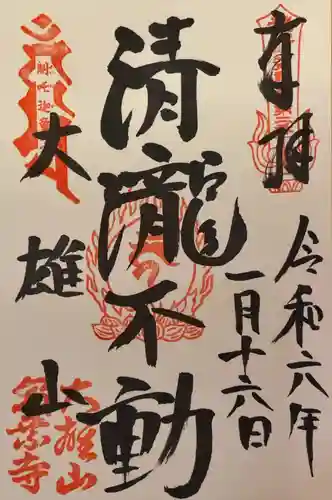 奉拝
令和六年
一月十六日
清瀧不動
大雄山
大雄山